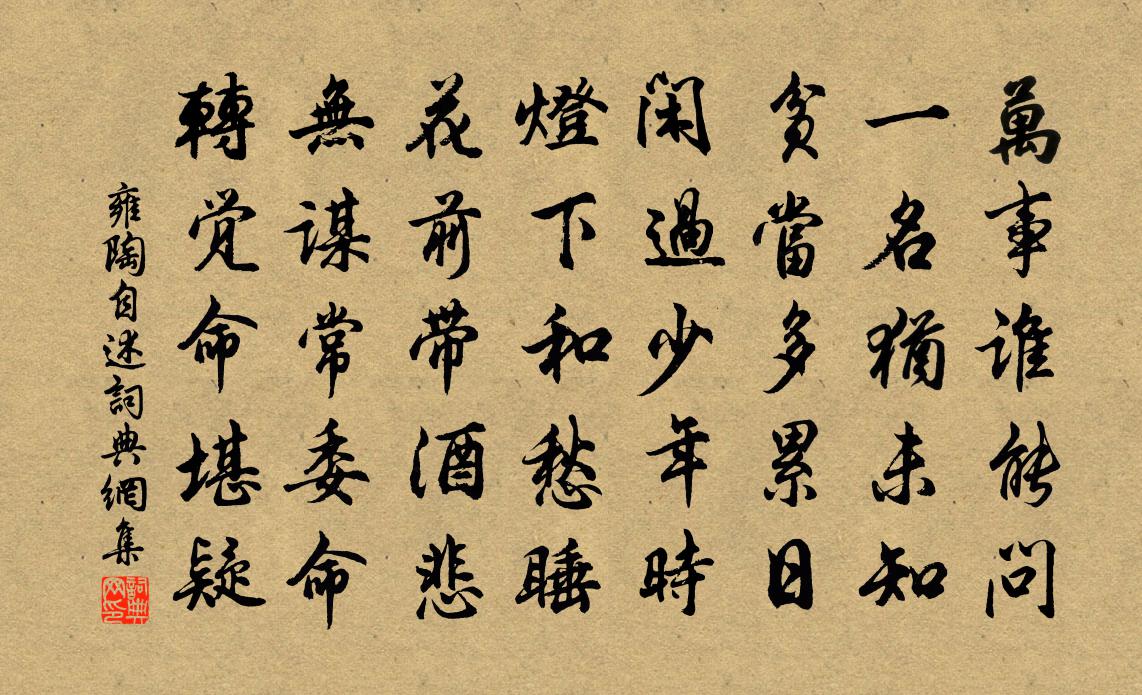 萬事誰能問
一名猶未知
貧當多累日
閑過少年時
燈下和愁睡
花前帶酒悲
無謀常委命
轉覺命堪疑
雍陶自述詞典網集
詞典
网印